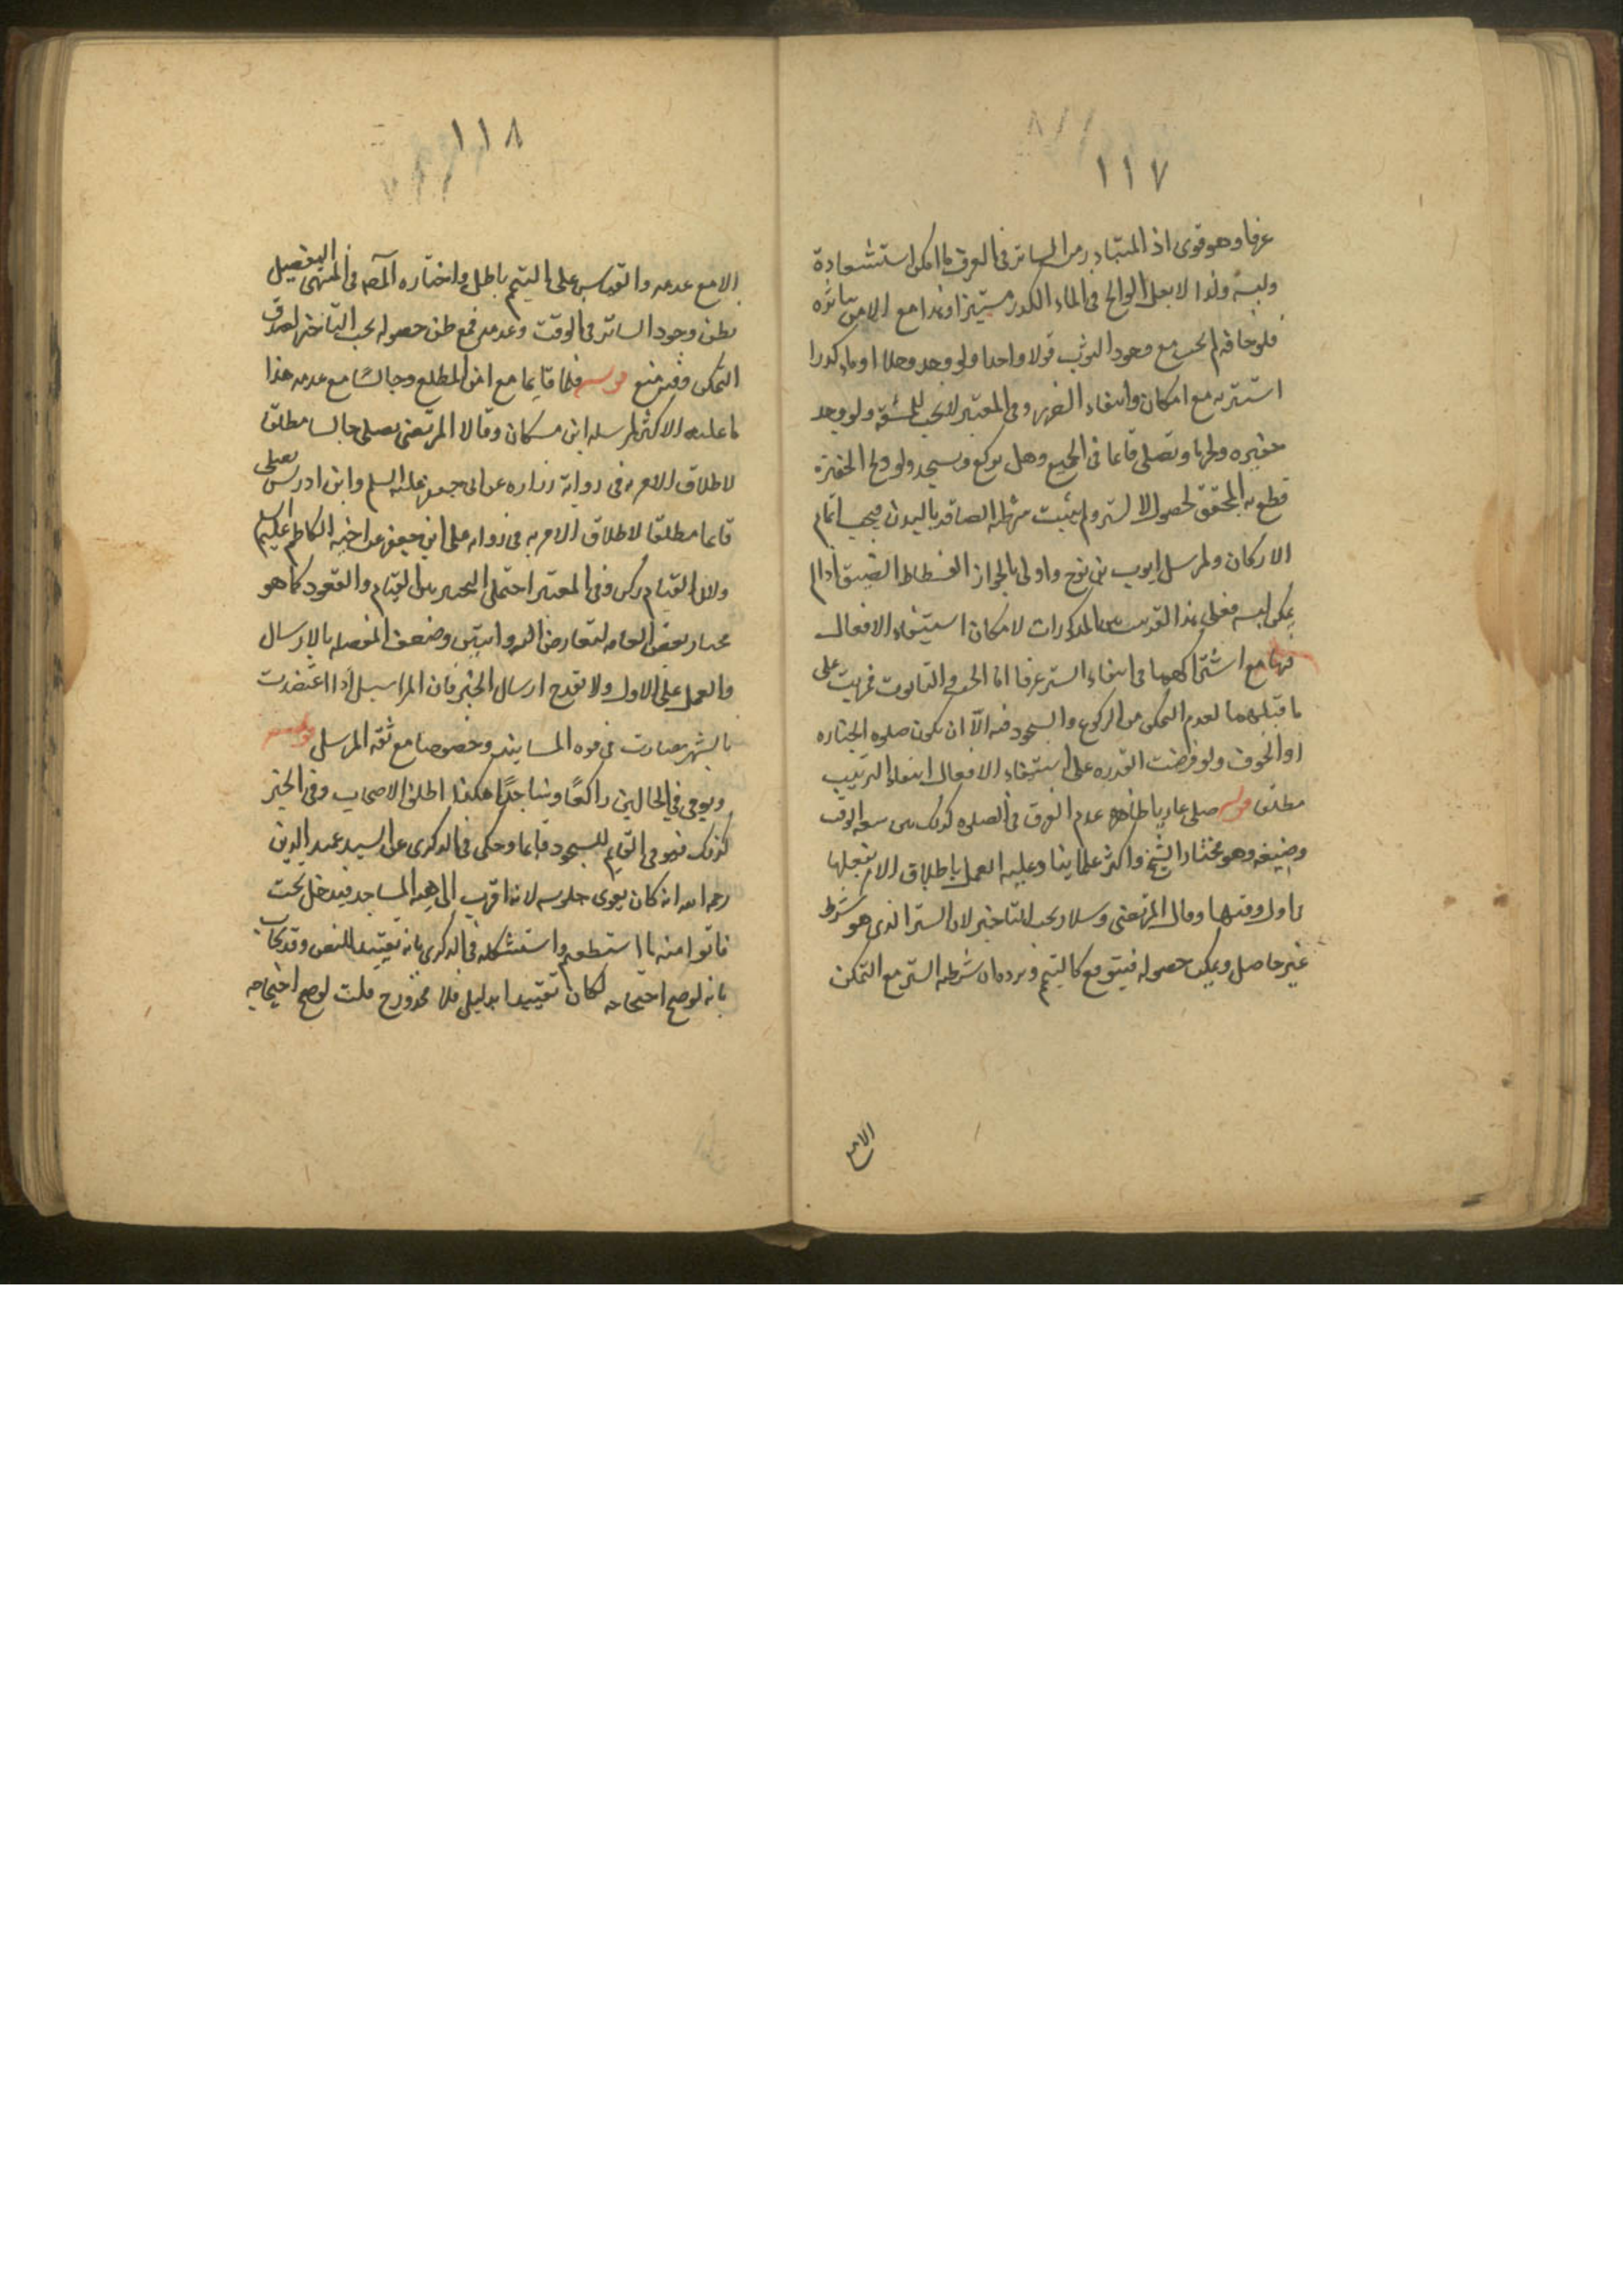 ١١٧
عرفا وهو قوى اذ المتبادر من الساتر فى العرف ما امكن استشعاره
ولبسه ولذا لا يعد الوالج فى الماء الكدر مستترا وهذا مع الامن
فلو خافه لم يجب مع وجود الثوب قولا واحدا ولو وجد وحلا او ماء كدرا
استتر به مع امكان وانتفاء الضرر وفى المعتبر لا يجب للمشقة ولو وجد
حفيره ولجها وتصلى قائما فى الجميع وهل يركع ويسجد ولو ولج الحفيرة
قطع به المحقق لحصول الستر ولم يثبت شرطية الصاقه بالبدن فيجب اتمام
الاركان ولمرسل ايوب بن نوح واولى بالجواز الفسطاط الضيق اذا لم
يمكن لبسه فعلى هذا القدر من المذكورات لامكان استيفاء الافعال
فيها مع اشتراكهما فى انتفاء الستر عرفا اما الحب والتابوت فمرتبت على
ما قبلهما لعدم التمكن من الركوع والسجود فيه الا ان يكون صلوه الجنازه
او الخوف ولو فرضت القدره على استيفاء الافعال انتفاء الترتيب
مطلق قوله صلى عاريا ظاهره عدم الفرق فى الصلوه كذلك بين سعه الوقت
وضيقه وهو مختار الشيخ واكثر علماينا وعليه العمل باطلاق الامر بفعلها
باول وقتها وقال المرتضى وسلار يجب التاخير لان الستر الذى هو شرط
غير حاصل ويمكن حصوله فيتوقع كالتيمم ويرده ان شرطه الستر مع التمكن
الا مع
١١٨
الا مع عدمه والقياس على التيمم باطل واختاره المصه فى المنتهى التفصيل
بظن وجود الساتر فى الوقت وعدمه فمع ظن حصوله يجب التاخير لصدق
التمكن وفيه منع قوله قائما مع امن المطلع وجالسا مع عدمه هذا
ما عليه الاكثر لمرسله ابن مسكان وقال المرتضى يصلى جالسا مطلقا
لاطلاق الامر به فى رواية زراره عن ابى جعفر عليه السلم وابن ادريس يصلى
قائما مطلقا لاطلاق الامر به فى روايه على ابن جعفر عن اخيه الكاظم عليه السلم
ولان القيام ركن وفى المعتبر احتمل التخيير بين القيام والقعود كما هو
مختار بعض العامه لتعارض الروايتين وضعف المفصله بالارسال
والعمل على الاول ولا يقدح ارسال الخبر فان المراسيل اذا اعتضدت
بالشهره صارت فى قوه المسانيد وخصوصا مع ثقه المرسل قوله
ويومى فى الحالين راكعا وساجدا هكذا اطلق الاصحاب وفى الخبر
كذلك فيومى القايم للسجود قائما وحكى فى الذكرى عن السيد عميد الدين
رحمه الله انه كان يقوى جلوسه لانه اقرب الى هيه المساجد فيدخل تحت
فاتوا منه ما استطعتم واستشكله فى الذكرى بانه تقييد للنص وقد يجاب
بانه لو صح احتجاجه لكان تقييدا بدليل فلا محذور ح قلت لو صح احتجاجه